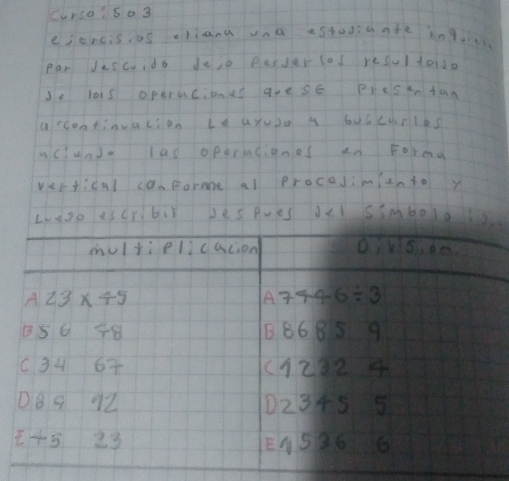 curso: 503
ejercisios eliana una estudiante
por descuido dejo perder los resultados
de las operaciones que se presentan
a continuacion Le ayuda a buscarlos
aciendo las operaciones en Forma
vertical conforme al Procedimiento y
Luego escribir despues del simbolo
multiplicacion Division
A 23 x 45 A 7446 ÷ 3
B 56 48 B 8685 9
C 34 67 C 1232 4
D 89 12 D 2345 5
E 45 23 E 1536 6